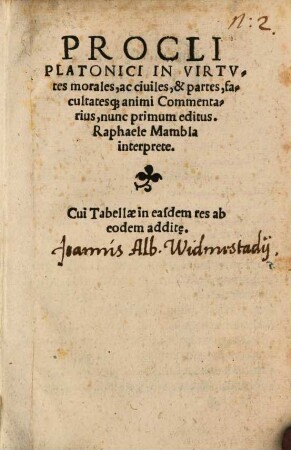 n: 2.
PROCLI
PLATONICI IN VIRTV-
tes morales, ac ciuiles, & partes, fa-
cultatesq; animi Commenta-
rius, nunc primum editus.
Raphaele Mambla
interprete.
Cui Tabellæ in easdem res ab
eodem additę.
Joannis Alb. Widmestadij.